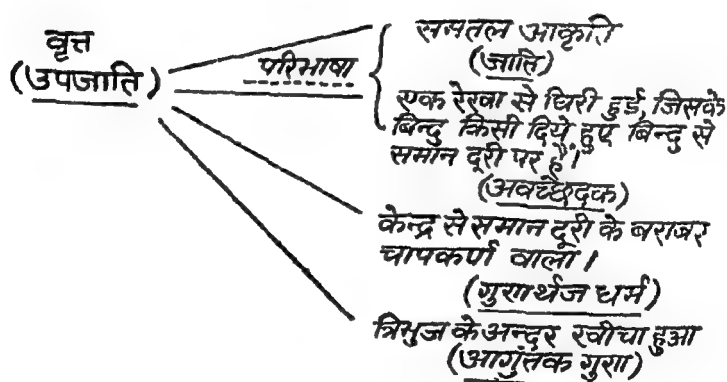 वृत्त
(उपजाति)
परिभाषा
समतल आकृति
(जाति)
एक रेखा से घिरी हुई, जिसके
बिन्दु किसी दिये हुए बिन्दु से
समान दूरी पर हैं।
(अवच्छेदक)
केन्द्र से समान दूरी के बराबर
चापकर्ण वाला।
(गुणार्थज धर्म)
त्रिभुज के अन्दर खींचा हुआ
(आगुंतक गुण)